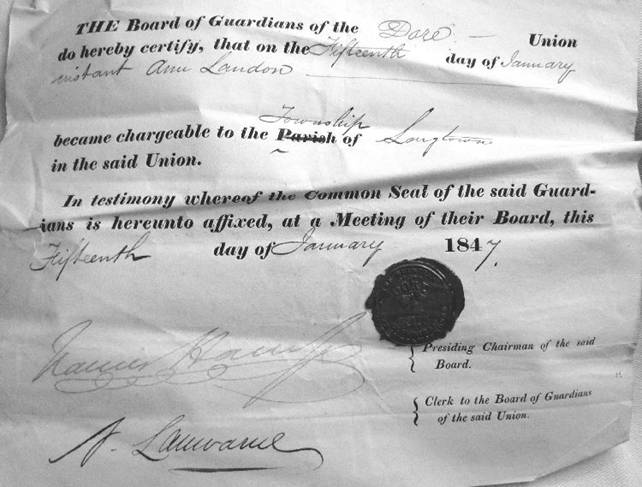 THE Board of Guardians of the Dore Union
do hereby certify, that on the Fifteenth day of January
instant Ann Landon
Township
became chargeable to the Parish of Longtown
in the said Union.
In testimony whereof the Common Seal of the said Guard-
ians is hereunto affixed, at a Meeting of their Board, this
Fifteenth day of January 1847.
Presiding Chairman of the said
Board.
Clerk to the Board of Guardians
of the said Union.